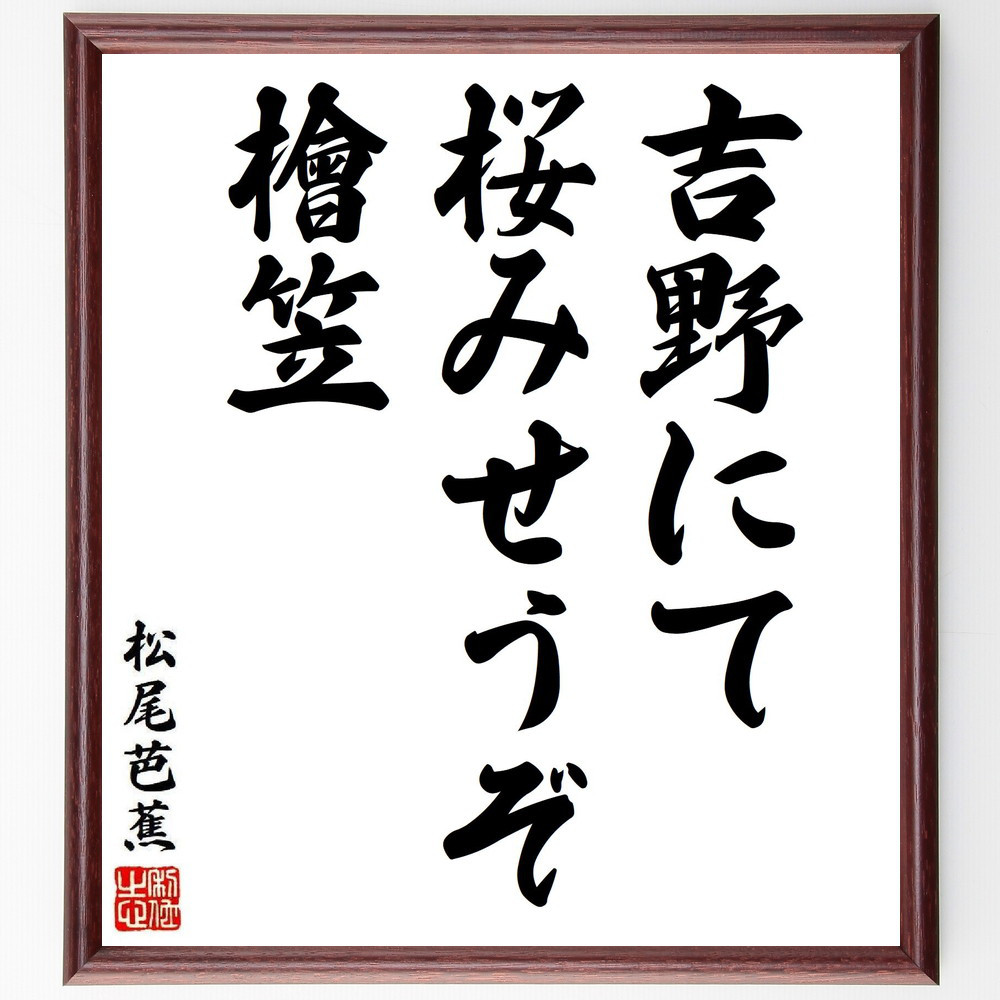 吉野にて
桜みせうぞ
檜笠
松尾芭蕉